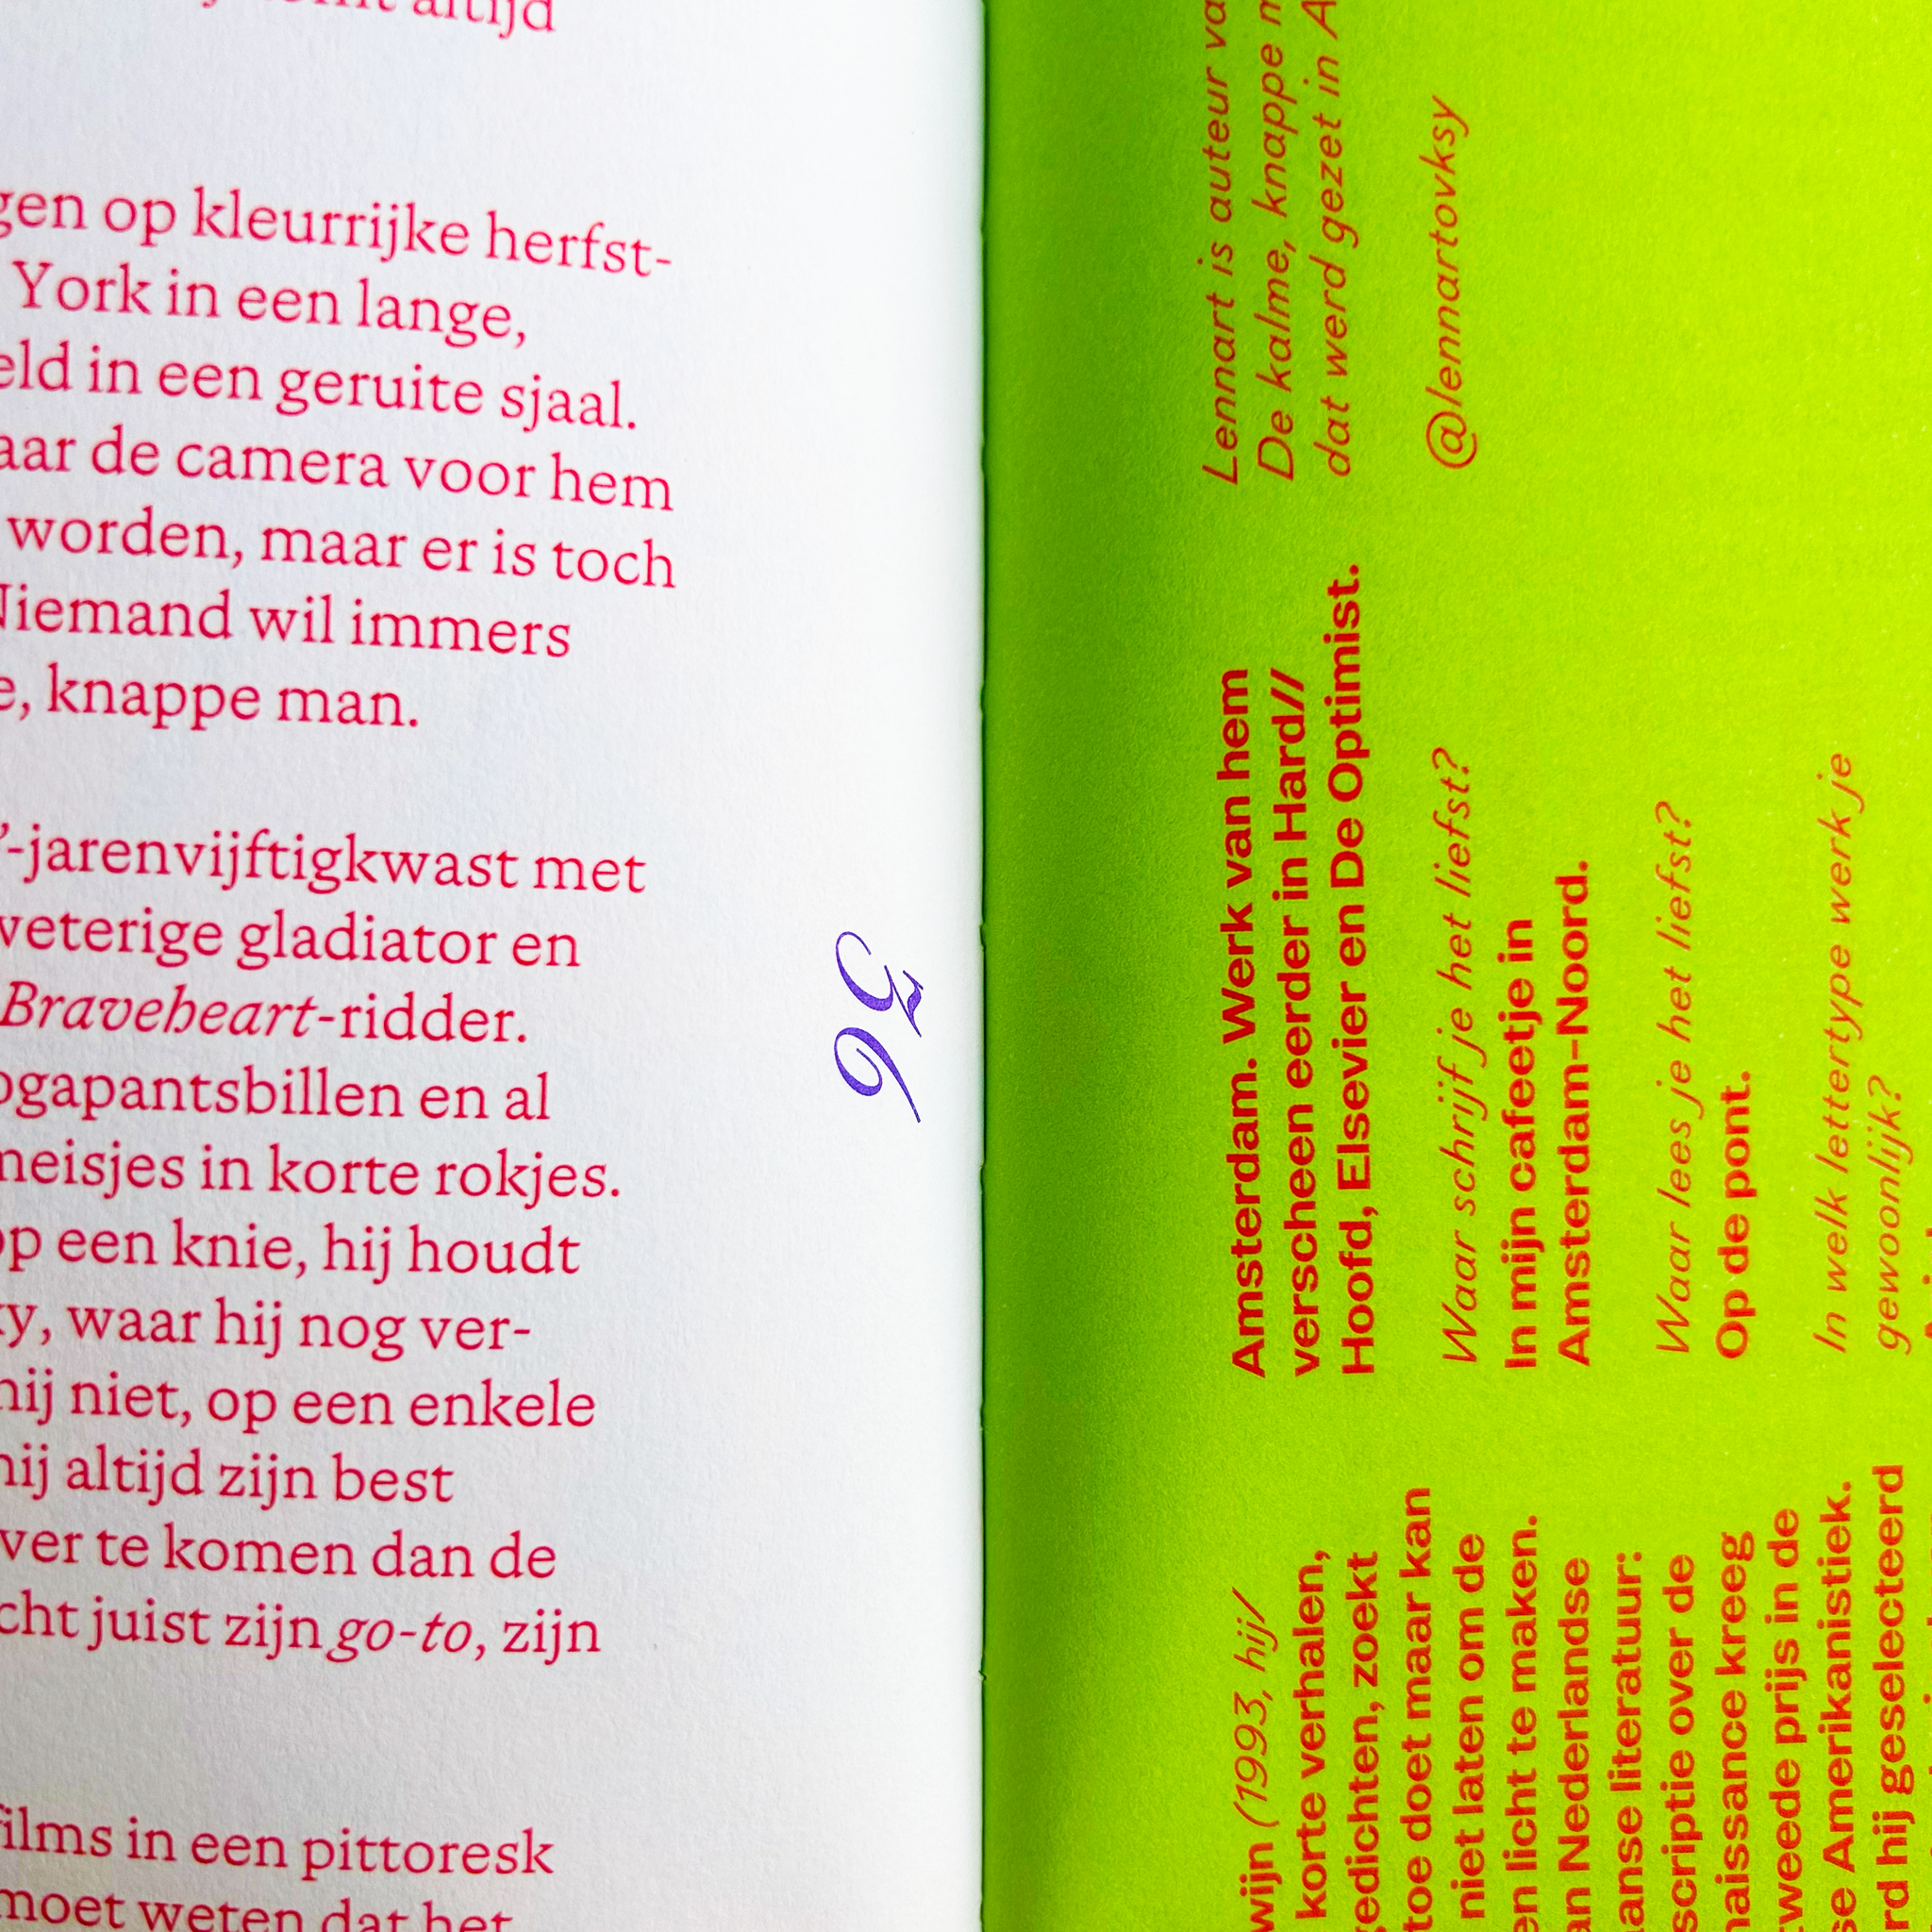 altijd
op kleurrijke herfst-
York in een lange,
in een geruite sjaal.
de camera voor hem
worden, maar er is toch
Niemand wil immers
knappe man.
-jarenvijftigkwast met
gladiator en
Braveheart-ridder.
en al
in korte rokjes.
een knie, hij houdt
waar hij nog ver-
niet, op een enkele
altijd zijn best
te komen dan de
juist zijn go-to, zijn
in een pittoresk
weten dat het
(1993, hij/
korte verhalen,
gedichten, zoekt
toe doet maar kan
niet laten om de
licht te maken.
Nederlandse
literatuur:
scriptie over de
kreeg
tweede prijs in de
Amerikanistiek.
hij geselecteerd
Amsterdam. Werk van hem
verscheen eerder in Hard//
Hoofd, Elsevier en De Optimist.
Waar schrijf je het liefst?
In mijn cafeetje in
Amsterdam-Noord.
Waar lees je het liefst?
Op de pont.
In welk lettertype werk je
gewoonlijk?
Lennart is auteur
De kalme, knappe
dat werd gezet in
@lennartovksy